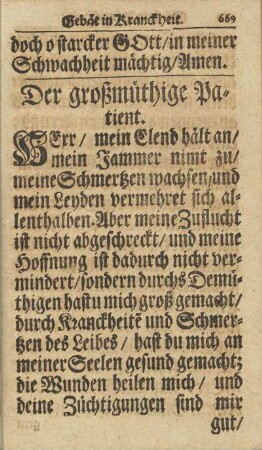 Gebät in Kranckheit. 669
doch o starcker GOtt/ in meiner
Schwachheit mächtig/ Amen.
Der großmüthige Pa-
tient.
HErr/ mein Elend hält an/
mein Jammer nimt zu/
meine Schmertzen wachsen/ und
mein Leyden vermehret sich al-
lenthalben. Aber meine Zuflucht
ist nicht abgeschreckt/ und meine
Hoffnung ist dadurch nicht ver-
mindert/ sondern durchs Demü-
thigen hastu mich groß gemacht/
durch Kranckheitẽ und Schmer-
tzen des Leibes/ hast du mich an
meiner Seelen gesund gemacht;
die Wunden heilen mich/ und
deine Züchtigungen sind mir
gut/